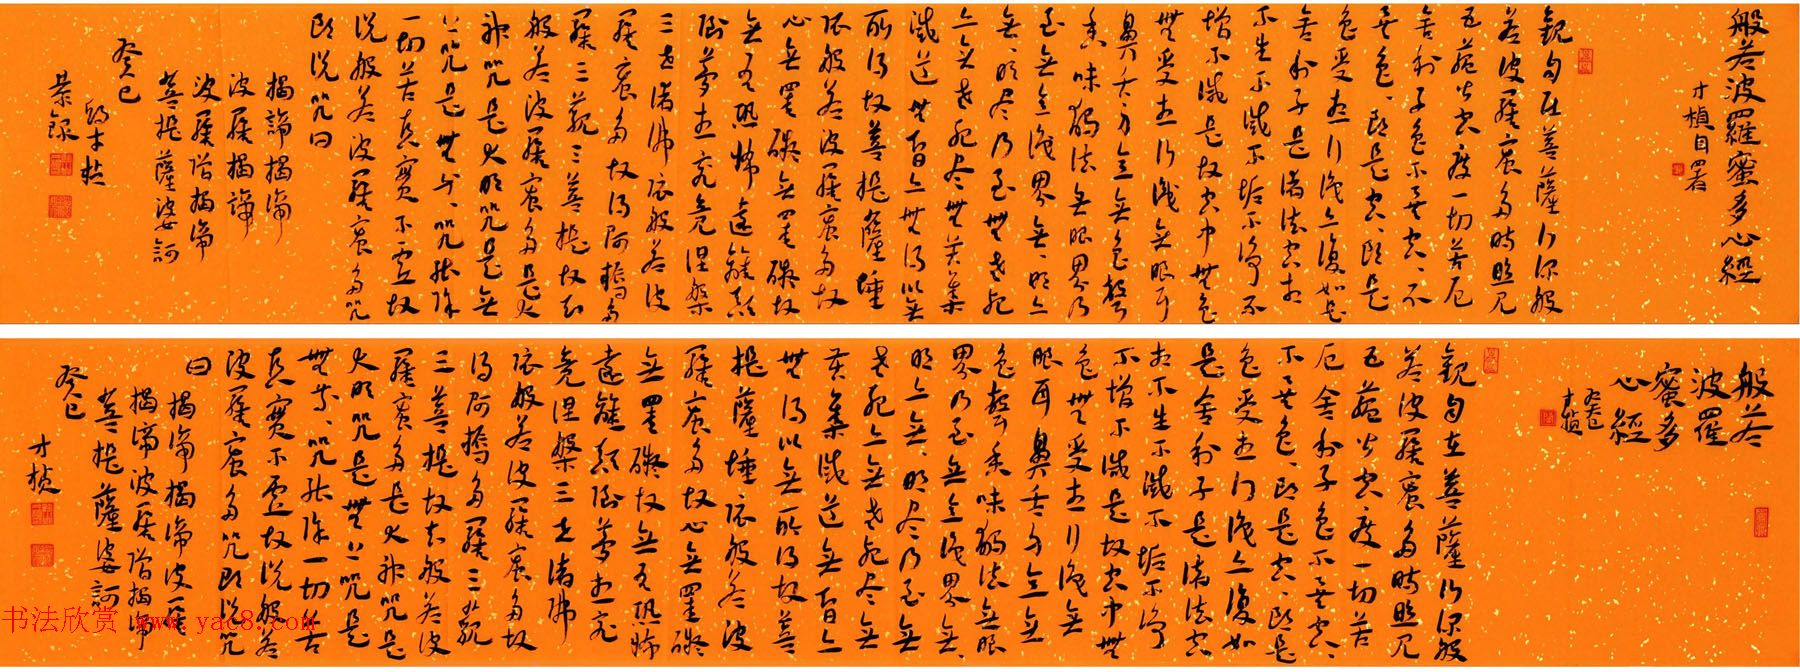 般若波羅蜜多心經
才楨自署
觀自在菩薩行深般
若波羅蜜多時照見
五蘊皆空度一切苦厄
舍利子色不異空、不
異色、即是空、即是
色受想行識亦復如是
舍利子是諸法空相
不生不滅不垢不淨不
增不減是故空中無色
無受想行識無眼耳
鼻舌身意無色聲
香味觸法無眼界乃
至無意識界無、明亦
無、明尽乃至無老死
亦無老死尽無苦集
滅道無智亦無得以無
所得故菩提薩埵
依般若波羅蜜多故
心無罣礙無罣礙故
無有恐怖遠離顛
倒夢想究竟涅槃
三世諸佛依般若波
羅蜜多故得阿耨多
羅三藐三菩提故知
般若波羅蜜多是大
神咒是大明咒是無
上咒是無等、咒能除
一切苦真實不虛故
說般若波羅蜜多咒
即說咒曰
揭諦揭諦
波羅揭諦
波羅僧揭諦
菩提薩婆訶
癸巳
才楨
恭錄
般若
波羅
蜜多
心經
癸巳
才楨
觀自在菩薩行深般
若波羅蜜多時照見
五蘊皆空度一切苦
厄舍利子色不異空、
不異色、即是空、即是
色受想行識亦復如
是舍利子是諸法空
相不生不滅不垢不淨
不增不減是故空中無
色無受想行識無
眼耳鼻舌身意無
色聲香味觸法無眼
界乃至無意識界無、
明亦無、明尽乃至無
老死亦無老死尽無
苦集滅道無智亦
無得以無所得故菩
提薩埵依般若波
羅蜜多故心無罣礙
無罣礙故無有恐怖
遠離顛倒夢想究
竟涅槃三世諸佛
依般若波羅蜜多故
得阿耨多羅三藐
三菩提故知般若波
羅蜜多是大神咒是
大明咒是無上咒是
無等、咒能除一切苦
真實不虛故說般若
波羅蜜多咒即說咒
曰
揭諦揭諦波羅
揭諦波羅僧揭諦
菩提薩婆訶
癸巳
才楨
书法欣赏 www.yac8.com